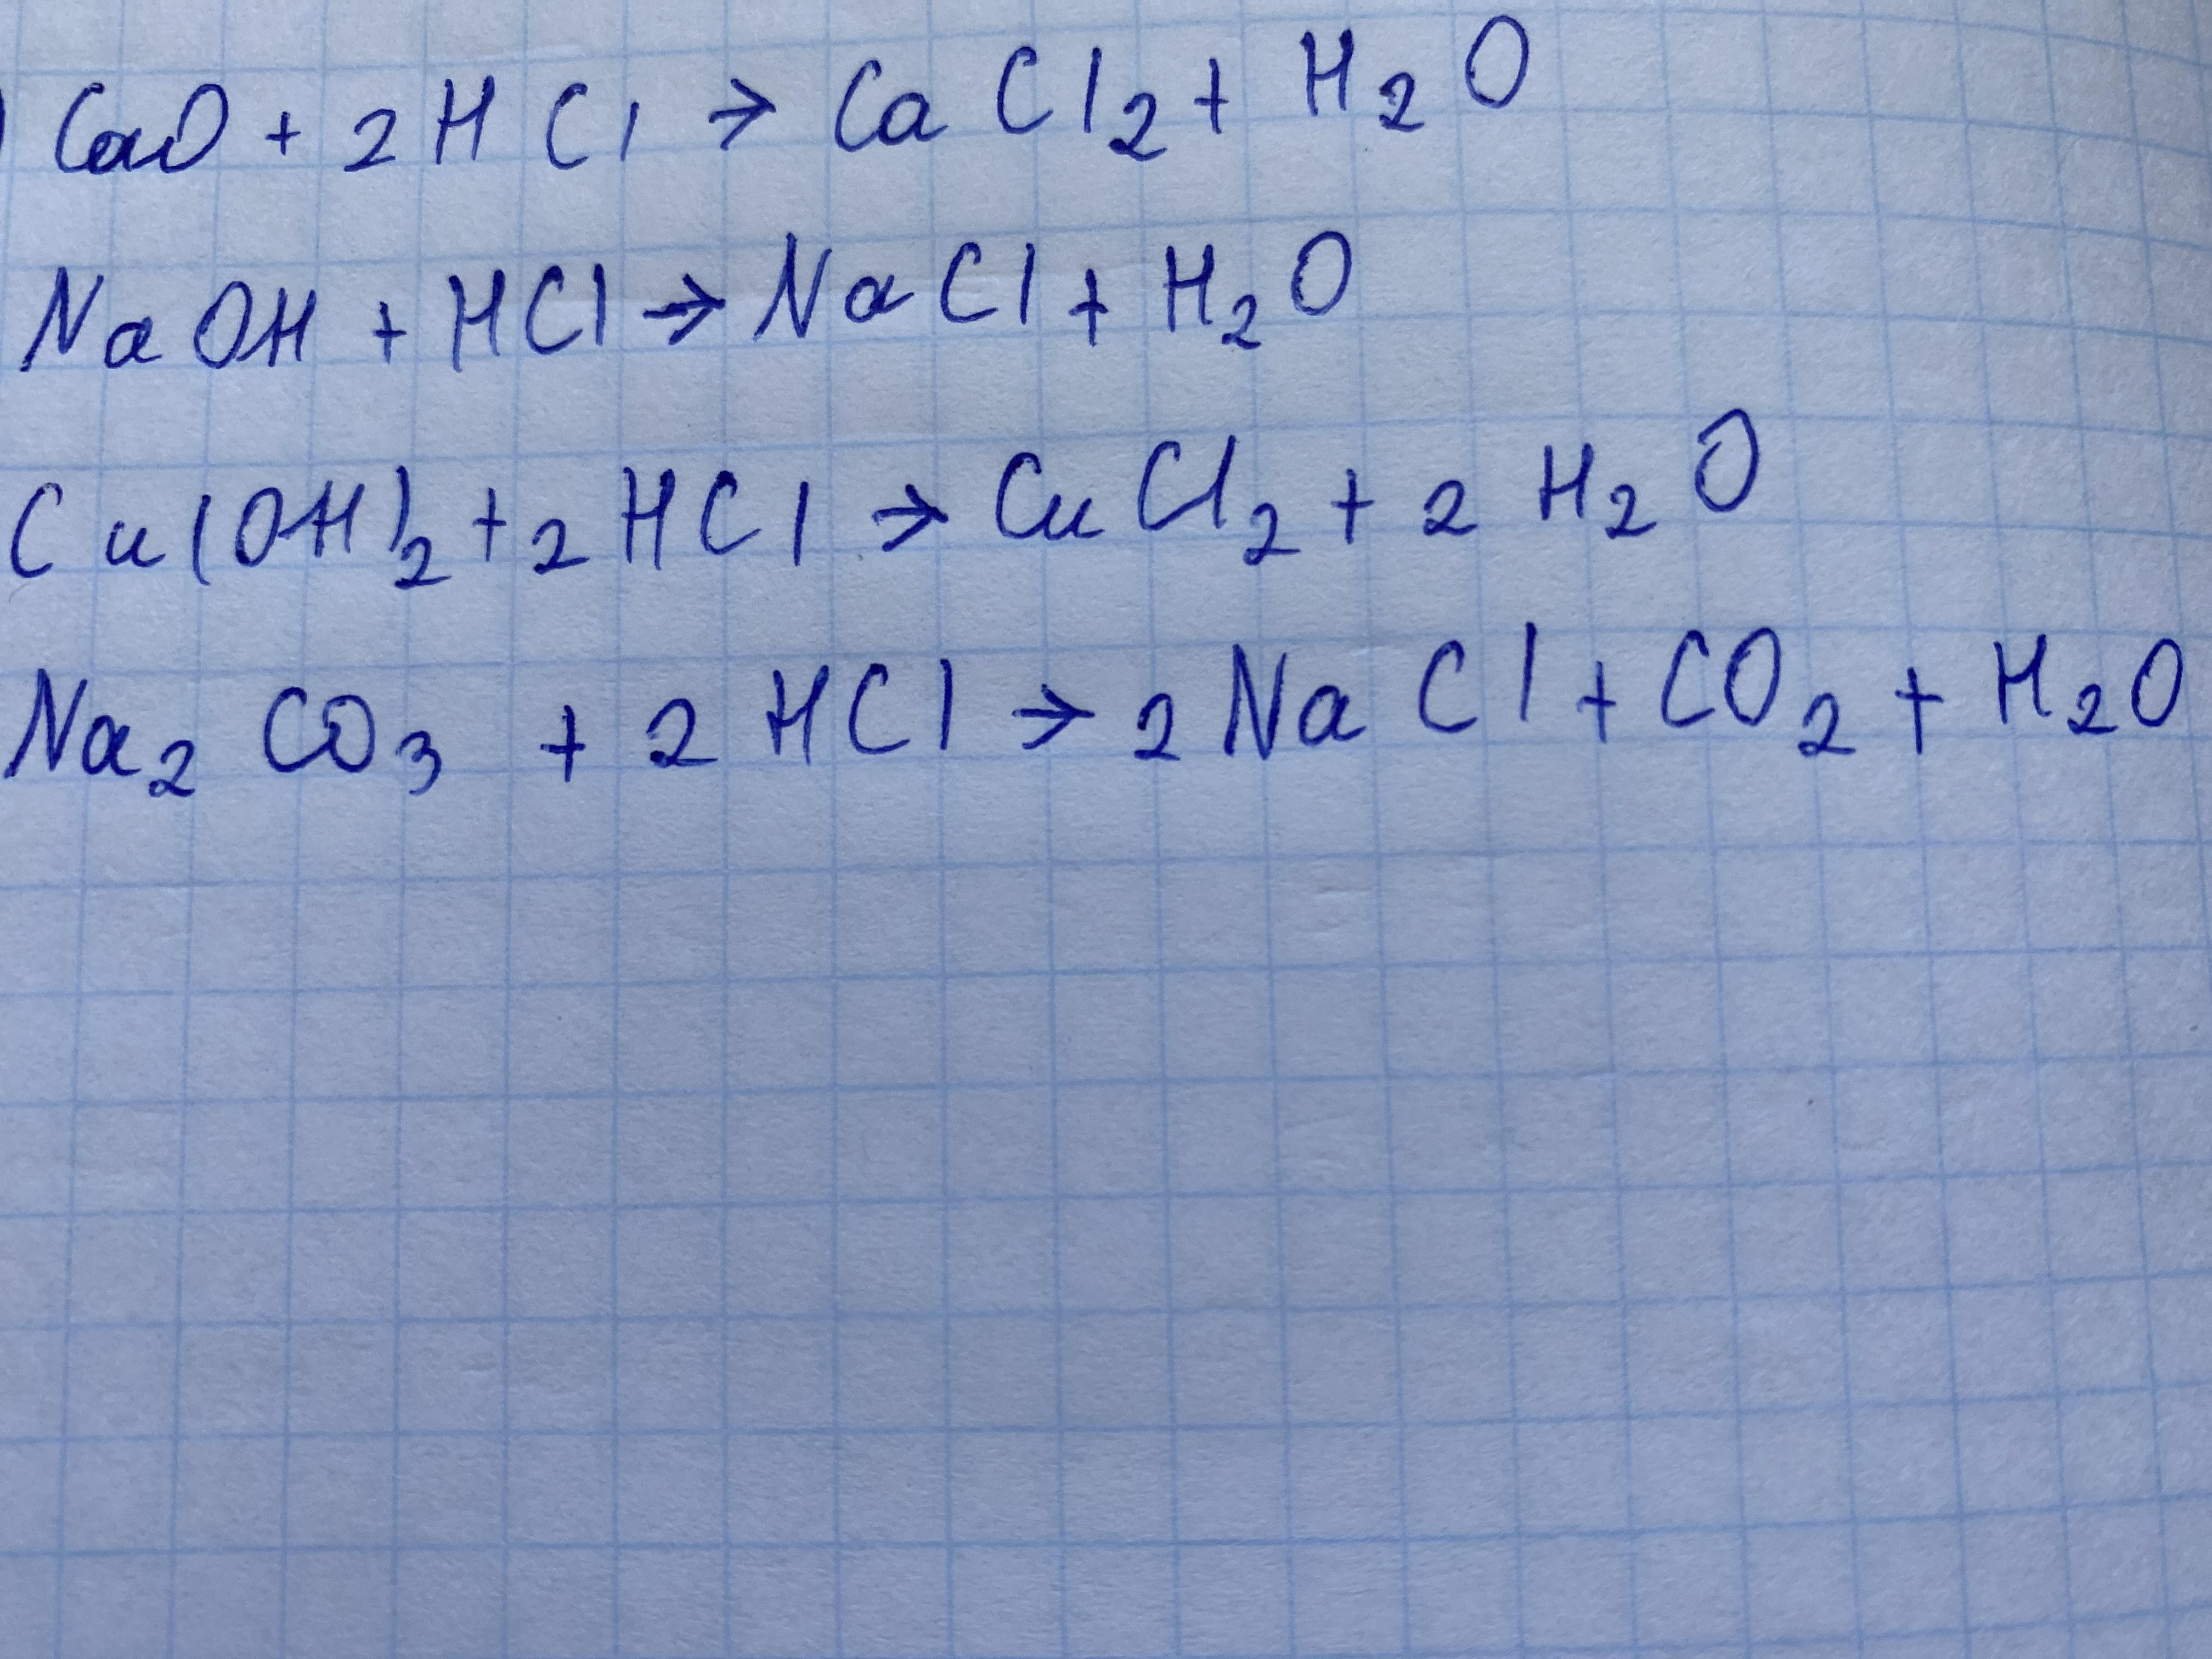 ) CaO + 2HCl → CaCl₂ + H₂O
NaOH + HCl → NaCl + H₂O
Cu(OH)₂ + 2HCl → CuCl₂ + 2H₂O
Na₂CO₃ + 2HCl → 2NaCl + CO₂ + H₂O